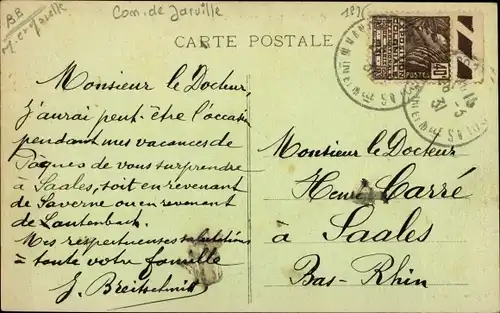 BB
Com. de Jarville
CARTE POSTALE
Monsieur le Docteur,
J'aurai peut-être l'occasion
pendant mes vacances de
Pâques de vous surprendre
à Saales, soit en revenant
de Saverne ou en revenant de
Lautenbach.
Mes respectueuses salutations
à toute votre famille
J. Breitschmitt
POSTES
40c
31
Monsieur le Docteur
Henri Carré
à Saales
Bas-Rhin